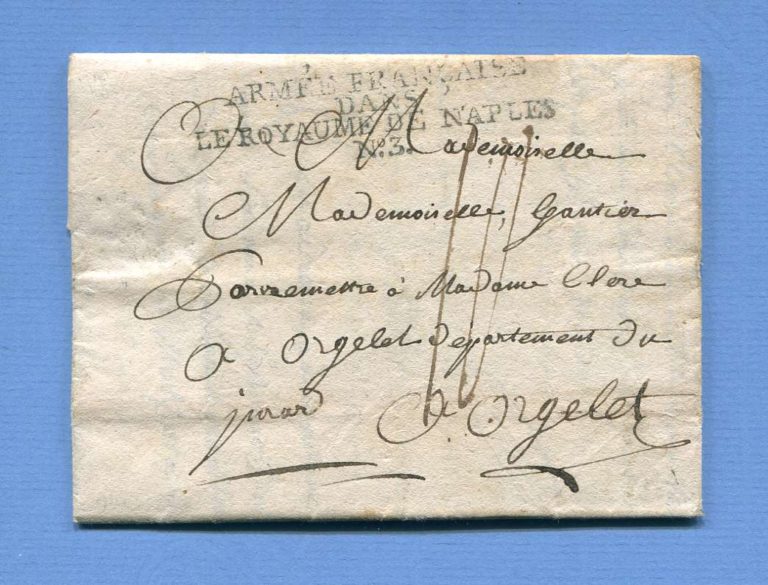 ARMÉE FRANÇAISE
DANS
LE ROYAUME DE NAPLES
N.º 3.
A Mademoiselle
Mademoiselle, Gautier
Madame Clere
a orgelet département du
jurard a orgelet